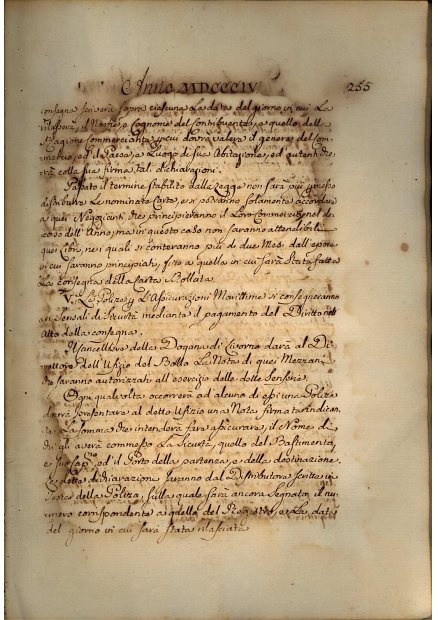 Anno MDCCCIV
255
consegna scriverà sopra ciascuna La data del giorno in cui La
rilasserà, il Nome, e Cognome del Contribuente, e quello della
Ragione Commerciante, in cui dovrà valere il genere del Com-
mercio, ed il Paese, e Luogo di sua Abitazione, ed autenti-
rà colla sua firma tali dichiarazioni.
Passato il termine stabilito dalla Legge non sarà più permesso
distribuire Le nominate Carte, e si potranno solamente accordare
a quei Negozianti che principieranno il Loro Commercio nel de-
corso dell'Anno, ma in questo caso non saranno attendibili
quei Libri, nei quali si conteranno più di due Mesi dall'epoca
in cui saranno principiati, fino a quello in cui sarà stata fatta
La consegna della Carta Bollata.
V. Le Polize per L'Assicurazioni Marittime si consegneranno
ai Sensali di Sicurtà mediante il pagamento del Diritto nell'
Atto della consegna.
Il Cancelliere della Dogana di Livorno darà al Di-
rettore dell'Ufizio del Bollo La Nota di quei Mezzani
che saranno autorizzati all'esercizio delle dette Senserie.
Ogni qual volta occorrerà ad alcuno di essi una Poliza
dovrà presentare al detto Ufizio una Nota firmata indicante
La somma che intenderà fare assicurare, il Nome di
chi gli averà commesso La Sicurtà, quello del Bastimento,
e suo Cap.º, ed il Porto della partenza, e della destinazione.
Le dette dichiarazioni saranno dal Distributore scritte in
dorso della Poliza, sulla quale sarà ancora segnato il nu-
mero corrispondente a quello del Registro, e La data
del giorno in cui sarà stata rilasciata